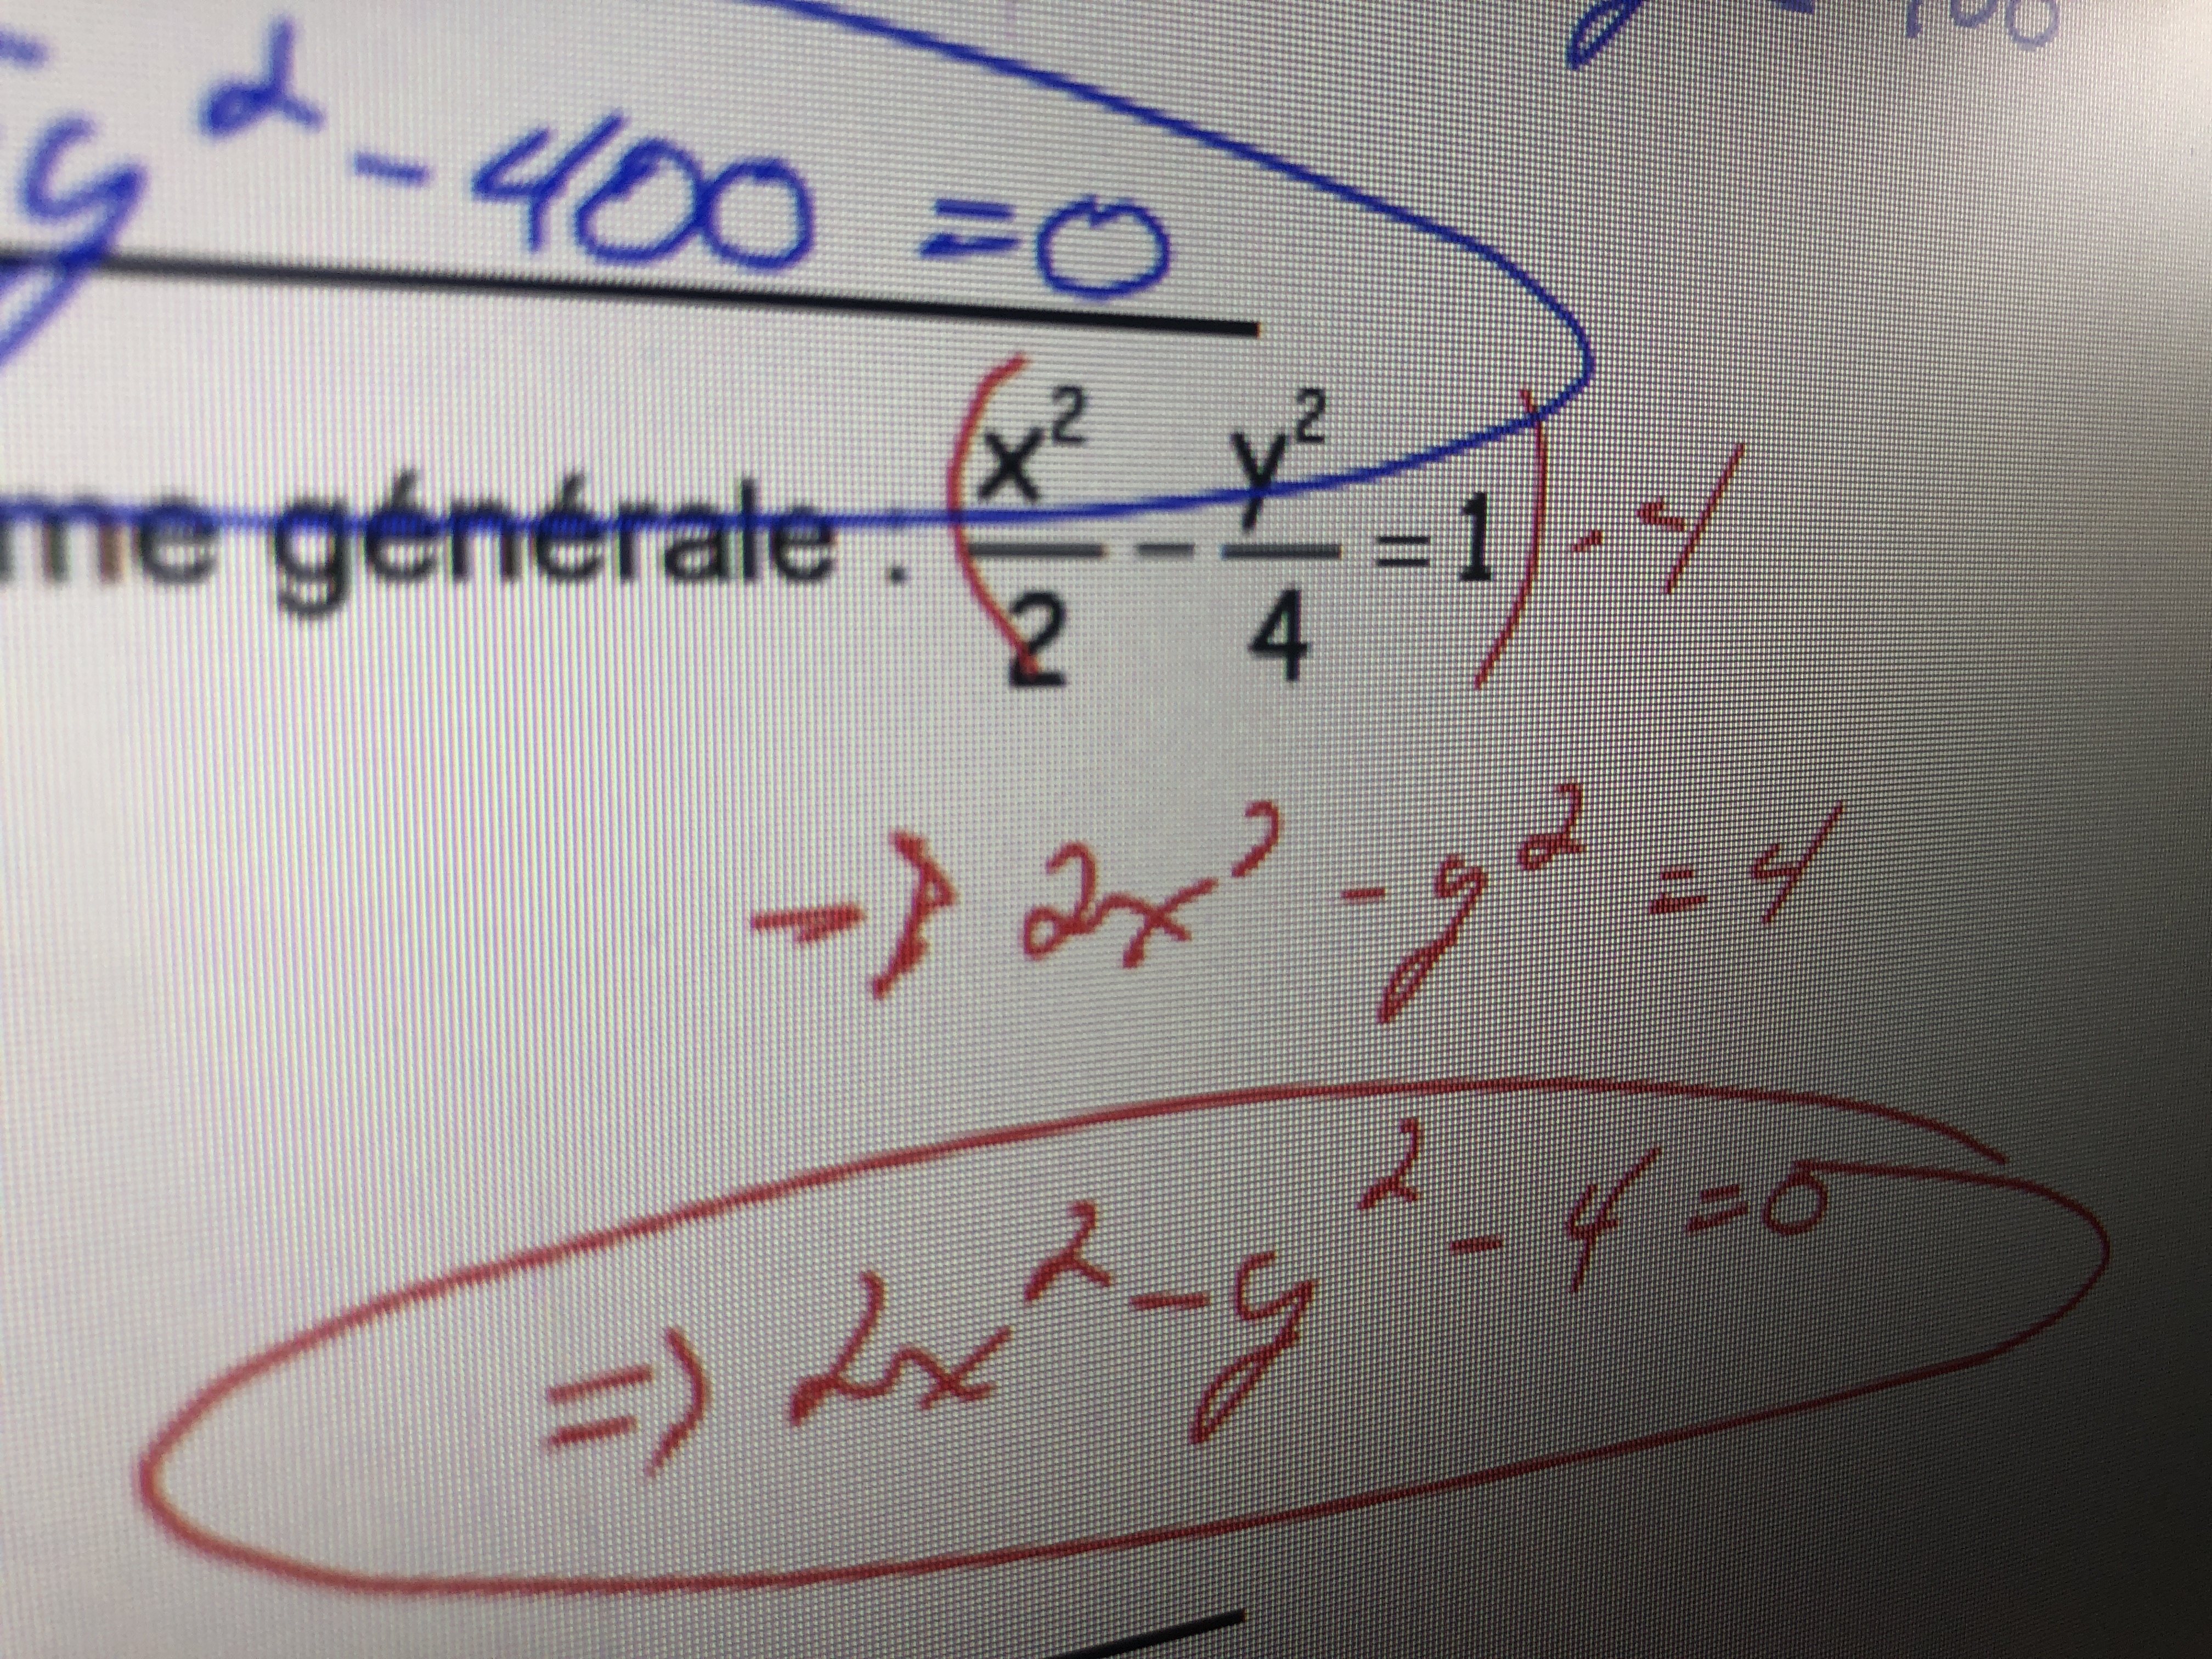 y² - 400 = 0
générale : (x²/2 - y²/4 = 1) · 4
→ 2x² - y² = 4
⇒ 2x² - y² - 4 = 0